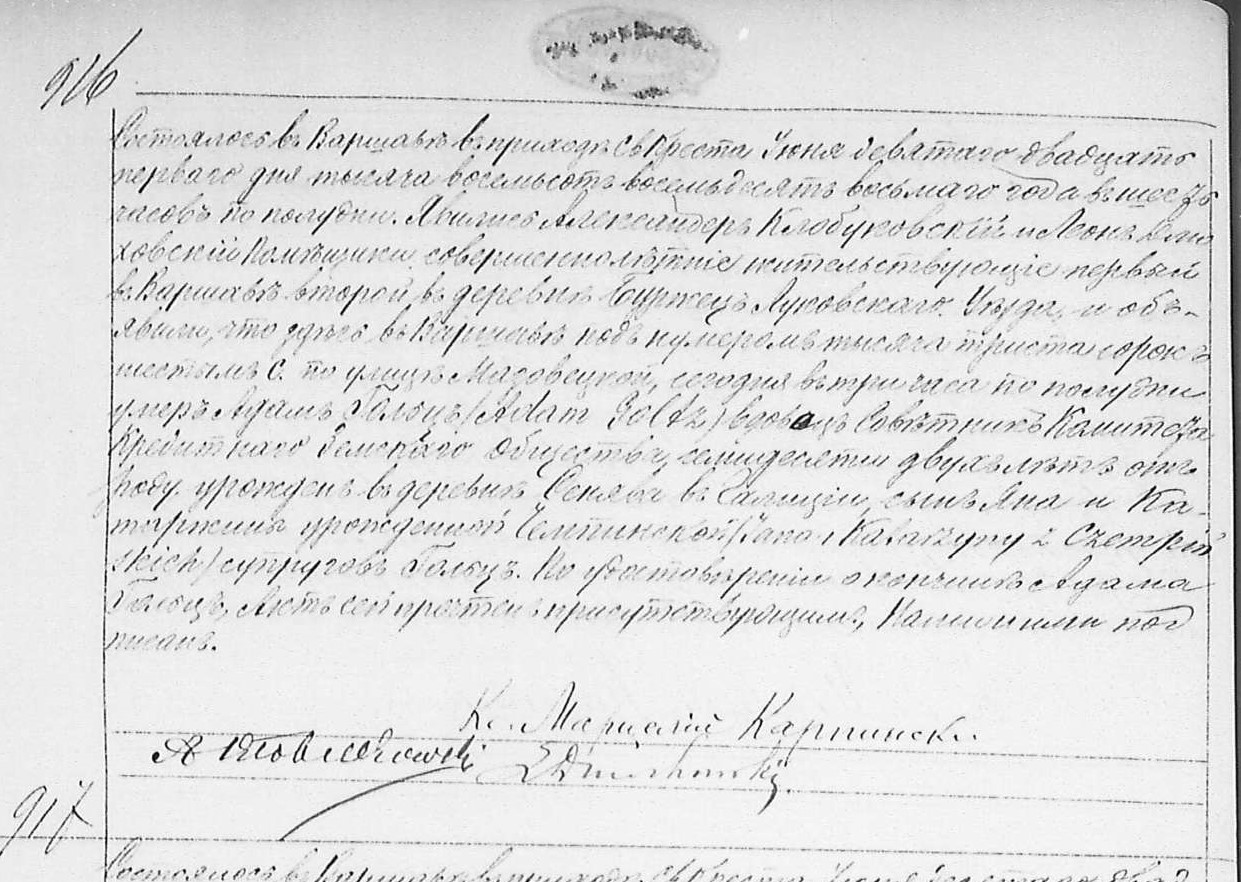 916
Состоялось въ Варшавѣ въ приходѣ Св. Креста Іюня девятаго двадцать
перваго дня тысяча восемьсотъ восемьдесятъ восьмаго года въ шесть
часовъ по полудни. Явились Александеръ Клобуковскій и Леонъ
ховскій Помѣщики совершеннолѣтніе жительствующіе первый
въ Варшавѣ второй въ деревнѣ Буржецъ Луковскаго Уѣзда, и объ-
явили, что здѣсь въ Варшавѣ подъ нумеромъ тысяча триста сорокъ
шестымъ С. по улицѣ Мазовецкой, сегодня въ три часа по полудни
умеръ Адамъ Гольцъ /Adam Goltz/ вдовецъ Совѣтникъ Комитета
Кредитнаго Земскаго Общества, семидесяти двухъ лѣтъ отъ
роду. урожденъ въ деревнѣ Сенява въ Галиціи, сынъ Яна и Ка-
таржины урожденной /Jana i Katarzyny z
skich/ супруговъ Гольцъ. По удостовѣреніи о кончинѣ Адама
Гольцъ, Актъ сей прочтенъ присутствующимъ, Нами и ими под
писанъ.
Кс. Марцелій Карпински
A Kłobukowski
917
Состоялось въ Варшавѣ въ приходѣ Св. Креста Іюня девятаго двад